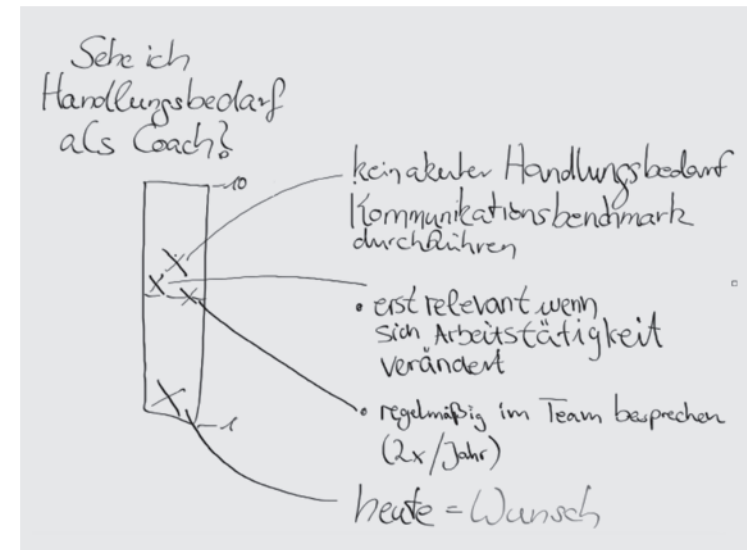 Sehe ich
Handlungsbedarf
als Coach?
10
kein akuter Handlungsbedarf
Kommunikationsbenchmark
durchführen
• erst relevant wenn
sich Arbeitstätigkeit
verändert
• regelmäßig im Team besprechen
(2x/Jahr)
1
heute = Wunsch